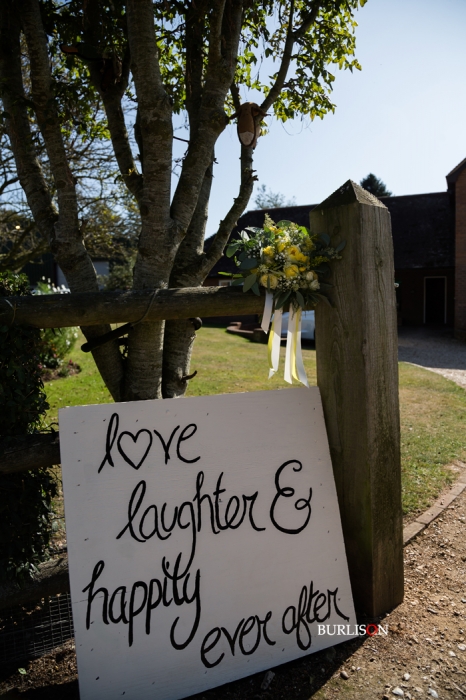 love
laughter &
happily
ever after
BURLISON